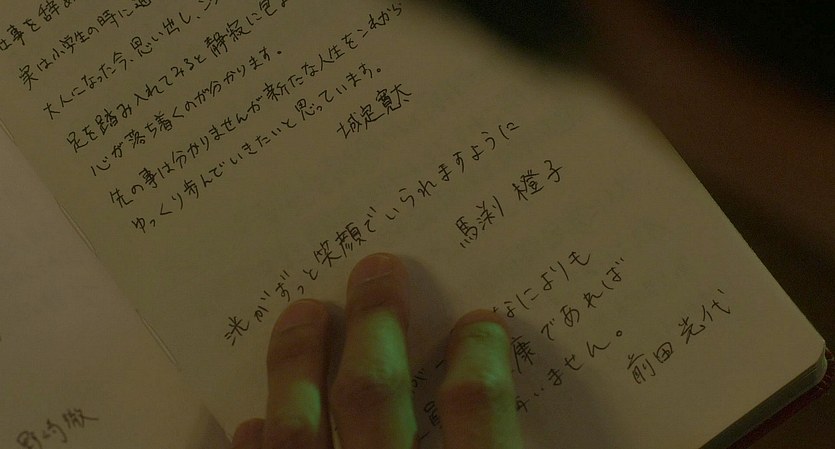 仕事を辞め
実は小学生の時に
大人になった今、思い出し、
足を踏み入れてみると静寂に包ま
心が落ち着くのが分かります。
先の事は分かりませんが新たな人生をこれから
ゆっくり歩んでいきたいと思っています。
城定寛太
洸がずっと笑顔でいられますように
馬渕 橙子
なによりも
康であれば
いません。
前田 光代
野崎徹